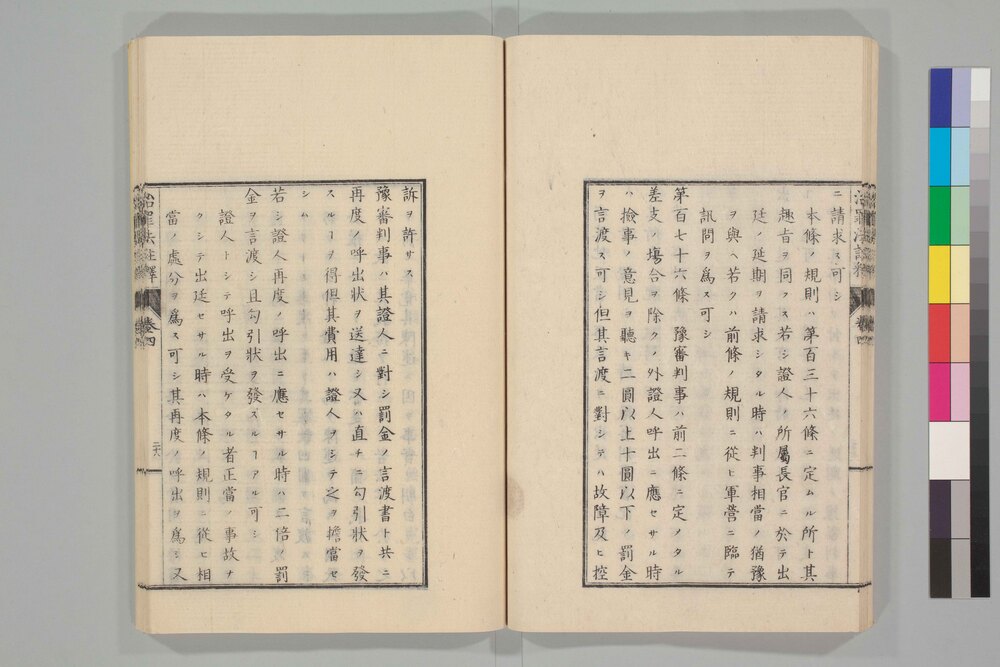 ニ請求ス可シ
本條ノ規則ハ第百三十六條ニ定ムル所ト其
趣旨ヲ同フス若シ證人ノ所屬長官ニ於テ出
廷ノ延期ヲ請求シタル時ハ判事相當ノ猶豫
ヲ與ヘ若クハ前條ノ規則ニ從ヒ軍營ニ臨テ
訊問ヲ爲ス可シ
第百七十六條 豫審判事ハ前二條ニ定メタル
差支ノ塲合ヲ除クノ外證人呼出ニ應セサル時
ハ撿事ノ意見ヲ聽キ二圓以上十圓以下ノ罰金
ヲ言渡ス可シ但其言渡ニ對シテハ故障及ヒ控
治罪法註釋 卷四 二十六
訴ヲ許サス
豫審判事ハ其證人ニ對シ罰金ノ言渡書ト共ニ
再度ノ呼出狀ヲ送達シ又ハ直チニ勾引狀ヲ發
スルヿヲ得但其費用ハ證人ヲシテ之ヲ擔當セ
シハ
若シ證人再度ノ呼出ニ應セサル時ハ二倍ノ罰
金ヲ言渡シ且勾引狀ヲ發スルヿアル可シ
證人トシテ呼出ヲ受ケタル者正當ノ事故ナ
クシテ出廷セサル時ハ本條ノ規則ニ從ヒ相
當ノ處分ヲ爲ス可シ其再度ノ呼出ヲ爲シ又
治罪法註釋 卷四